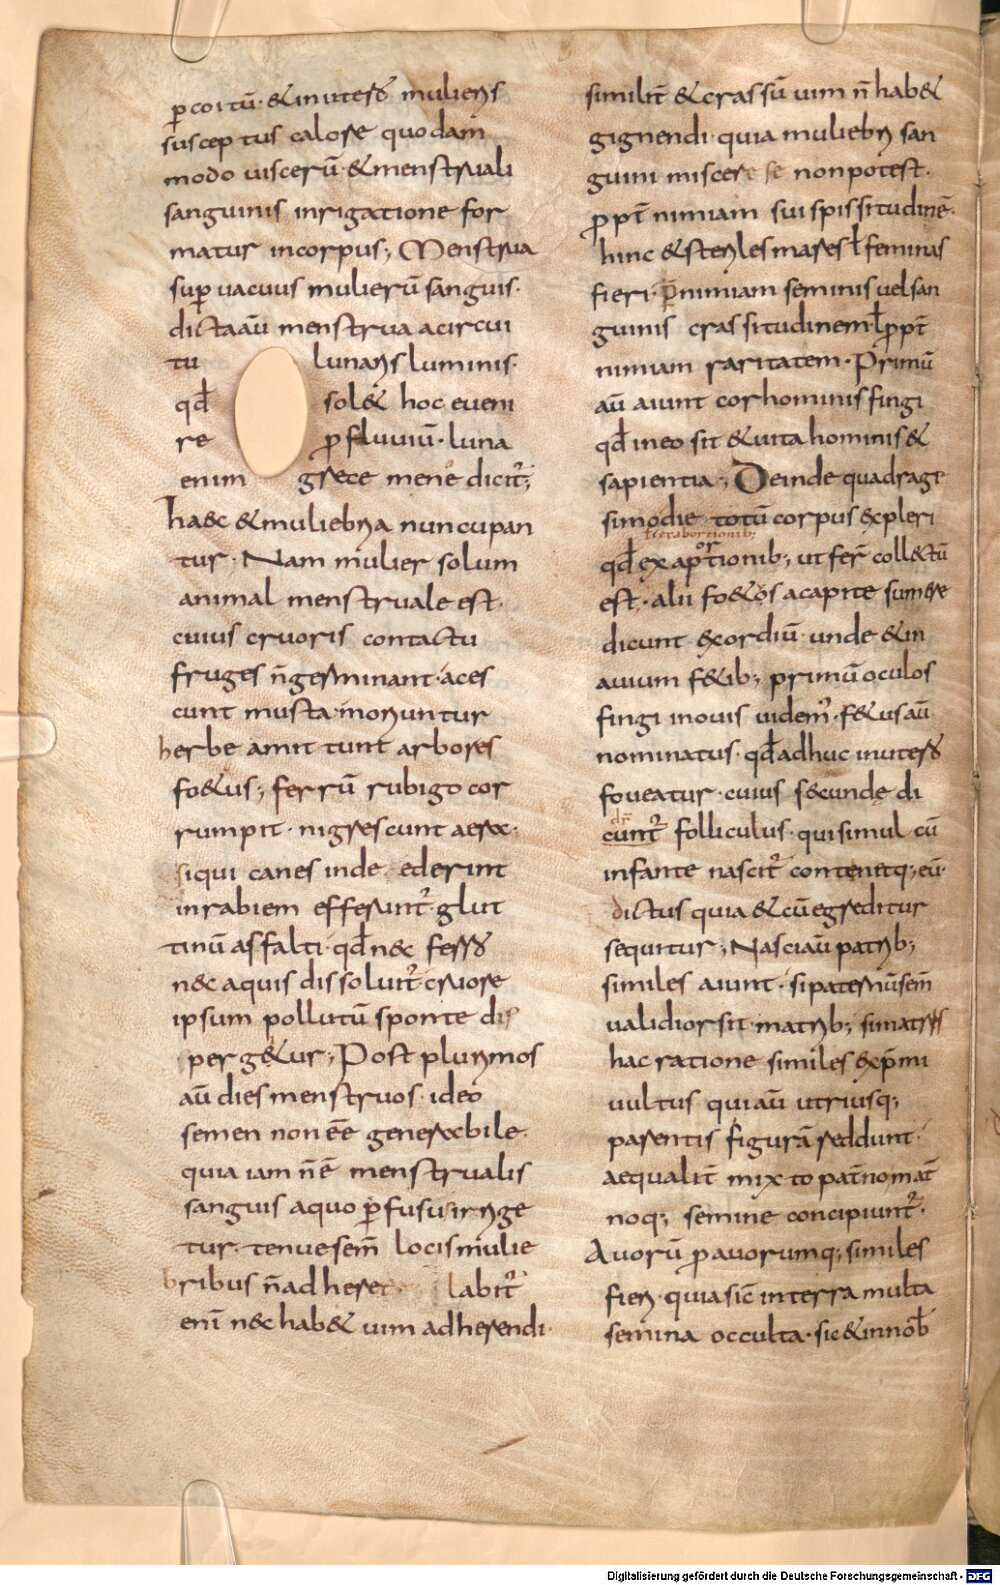 p̱ coitū· & in uter̄ mulieris
susceptus calore quodam
modo uiscerū & menstruali
sanguinis inrigatione for
matur in corpus; Menstrua
sup̱uacuus mulierū sanguis·
dicta aū menstrua a circui
tu lunaris luminis·
qđ sol& hoc eueni
re p̱fluuiū· luna
enim grece mene dicit̄;
Haec & muliebria nuncupan
tur· Nam mulier solum
animal menstruale est·
cuius cruoris contactu
fruges n̄ germinant· aces
cunt musta· moriuntur
herbe amittunt arbores
fo&us; ferrū rubigo cor
rumpit· nigrescunt aera·
siqui canes inde ederint
in rabiem efferunt̄· glut
tinū asfalti· qđ nec ferr̄
nec aquis dissoluit̄· cruore
ipsum pollutū sponte dis
perg&ur; Post plurimos
aū dies menstruos· ideo
semen non eē generabile·
quia iam n̄ ē menstrualis
sanguis a quo p̱fusus irrige
tur· tenue sem̄ locis mulie
bribus n̄ adheret· labit̄
enī nec hab& uim adherendi·
similit̄ & crassū uim n̄ hab&
gignendi· quia muliebri san
guini miscere se non potest·
p̱pt̄ nimiam sui spissitudinē·
hinc & steriles mares ł feminas
fieri· p̱ nimiam seminis uel san
guinis crassitudinem· ł p̱pt̄
nimiam raritatem· Primū
aū aiunt cor hominis fingi
qđ in eo sit & uita hominis &
sapientia; Deinde quadrage
simo die totū corpus expleri
ł ex abortionib;
qđ ex aportionib; ut fer̄ collectū
est· alii fo&os a capite sumere
dicunt exordiū· unde & in
auium f&ib; primū oculos
fingi in ouis uidem̄· f&us aū
nominatus· qđ adhuc in uter̄
foueatur· cuius secunde di
cunt̄ folliculus· qui simul cū
infante nascit̄ contenetq; eū·
dictus quia & cū egreditur
sequitur; Nasci aū patrib;
similes aiunt· si paternū sem̄
ualidior sit· matrib; si matris
hac ratione similes exp̄mi
uultus qui aū utriusq;
parentis figurā reddunt·
aequalit̄ mixto pat̄no mat̄
noq; semine concipiunt̄·
Auorū p̱auorumq; similes
fieri· quia sic̄ in terra multa
semina occulta· sic & in nob̄